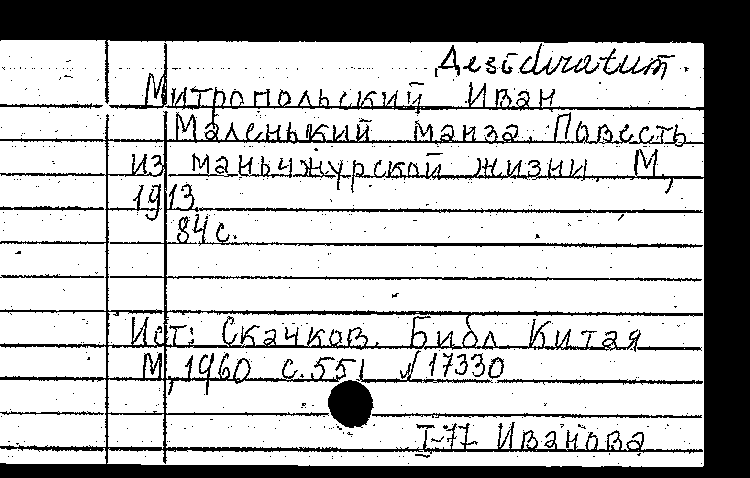 Дезideratum.
Митропольский Иван
Маленький манза. Повесть
из маньчжурской жизни. М.,
1913.
84 с.
Ист: Скачков. Библ. Китая
М, 1960 с. 551 №17330
I-77 Иванова